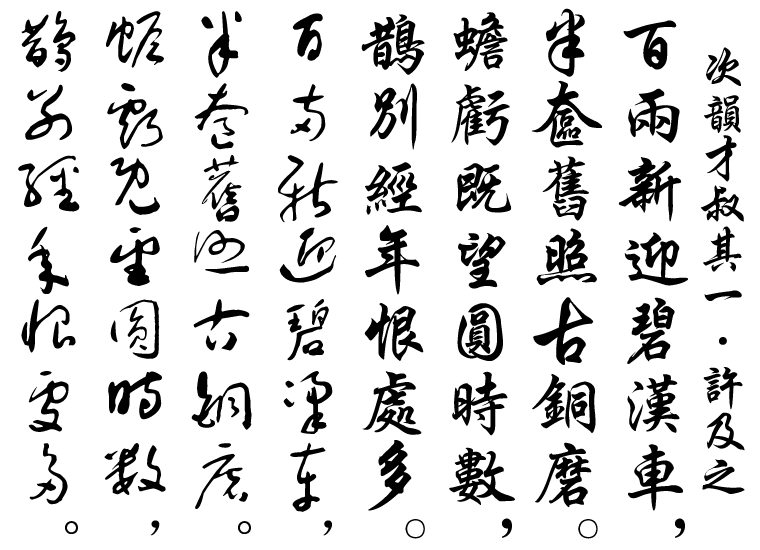 次韻才叔其一・許及之
百兩新迎碧漢車，
半奩舊照古銅磨。
蟾虧既望圓時數，
鵲別經年恨處多。
百兩新迎碧漢車，
半奩舊照古銅磨。
蟾虧既望圓時數，
鵲別經年恨處多。